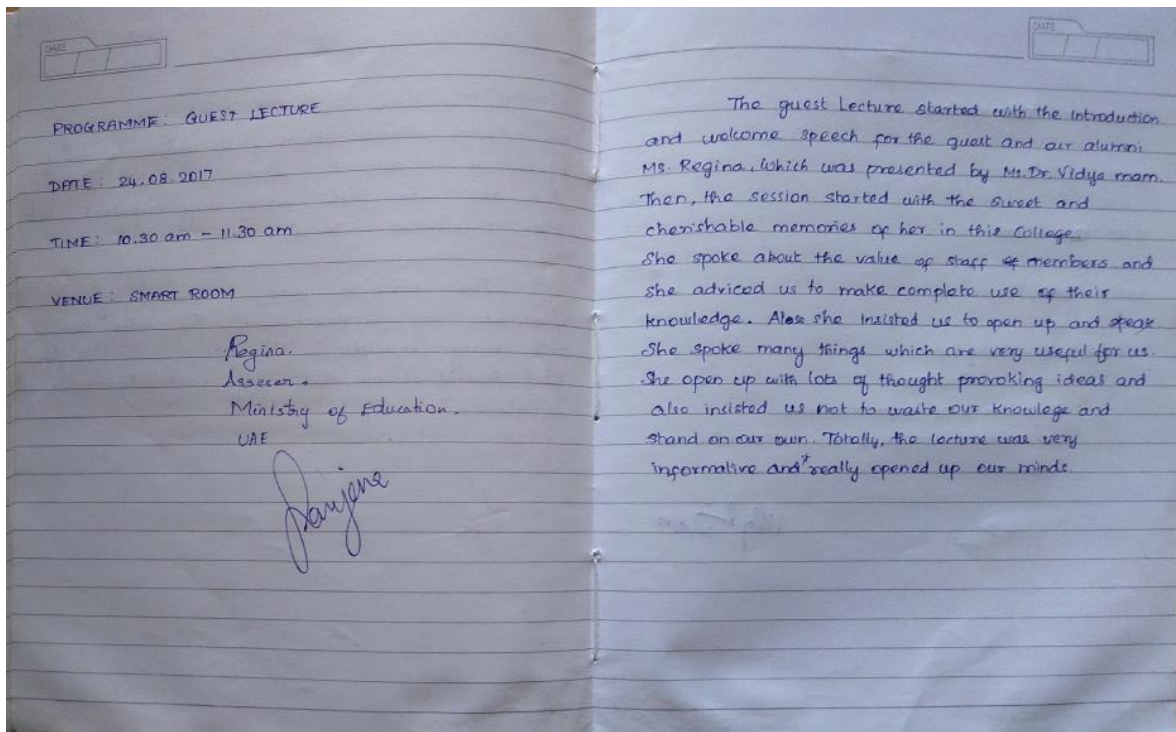 DATE
PROGRAMME: GUEST LECTURE
DATE: 24.08.2017
TIME: 10.30 am - 11.30 am
VENUE: SMART ROOM
Regina.
Assecer.
Ministry of Education.
UAE
DATE
The guest Lecture started with the introduction
and welcome speech for the guest and our alumni
Ms. Regina, which was presented by Ms. Dr. Vidya mam.
Then, the session started with the sweet and
cherishable memories of her in this College.
She spoke about the value of staff members and
she adviced us to make complete use of their
knowledge. Also she insisted us to open up and speak
She spoke many things which are very useful for us.
She open up with lots of thought provoking ideas and
also insisted us not to waste our knowlege and
stand on our own. Totally, the lecture was very
informative and really opened up our minds.